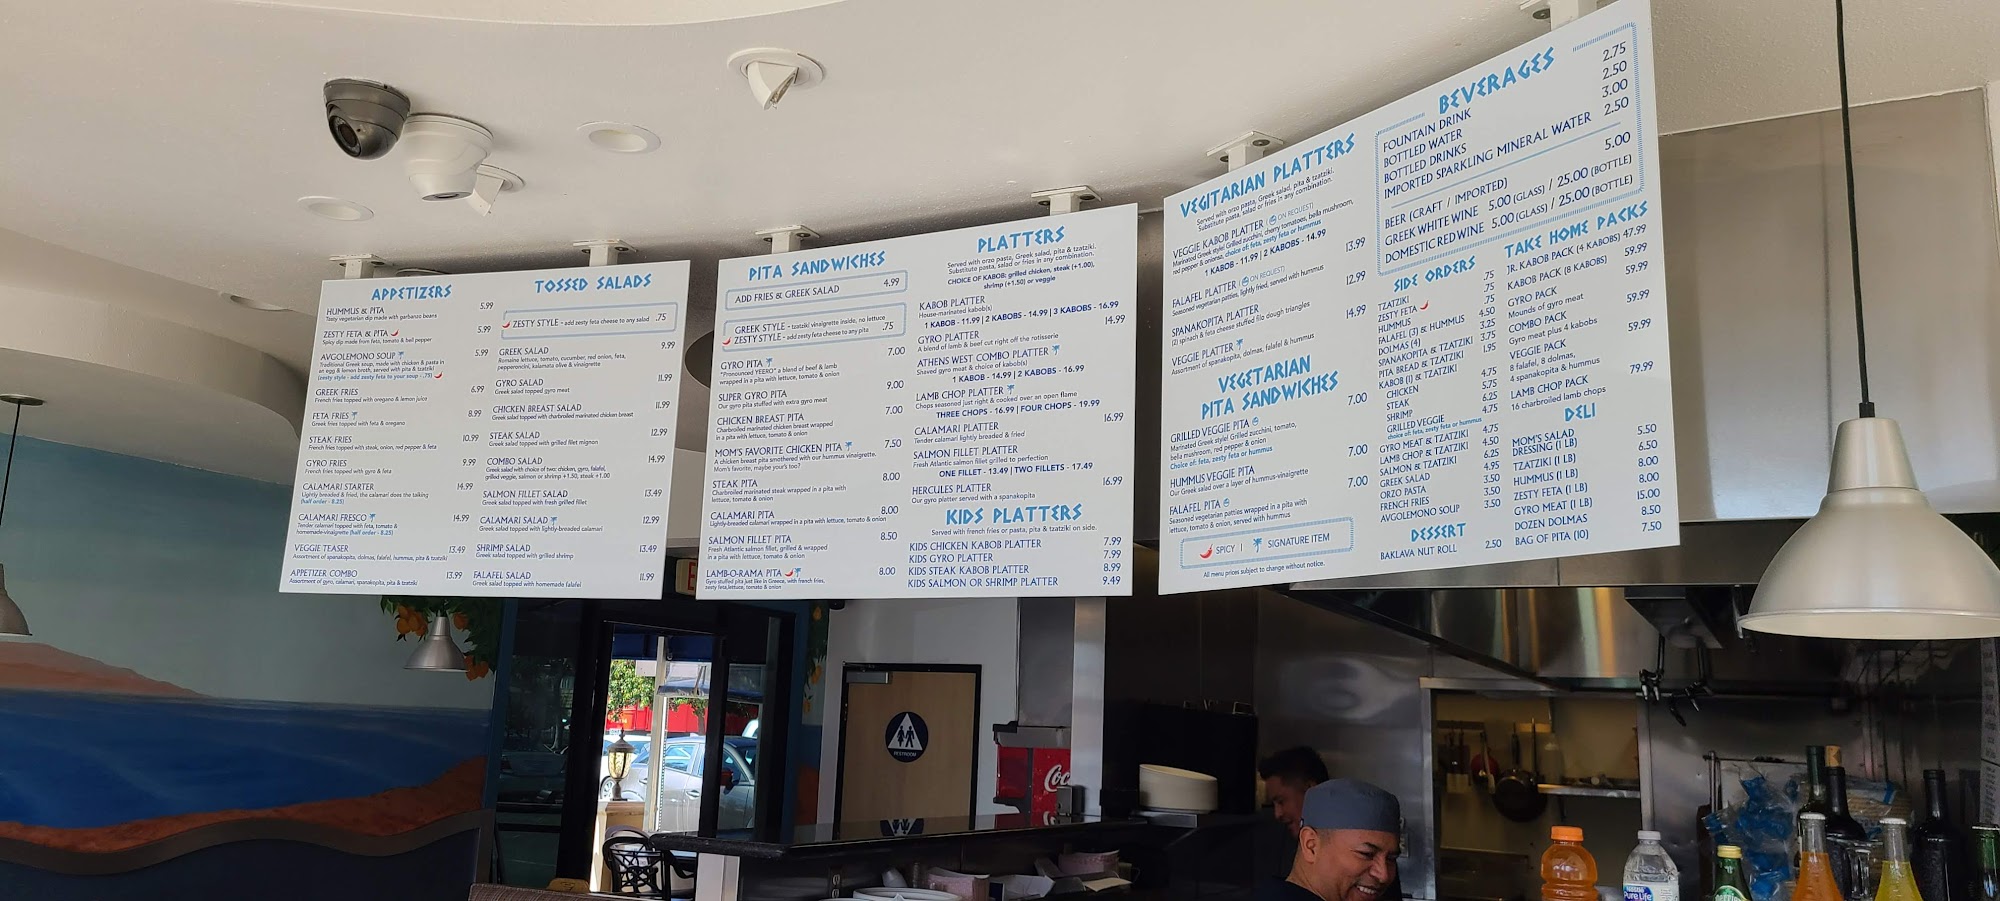 APPETIZERS
HUMMUS & PITA 5.99
Tasty vegetarian dip made with garbanzo beans
ZESTY FETA & PITA 5.99
Spicy dip made from feta, tomato & bell pepper
AVGOLEMONO SOUP 5.99
Traditional Greek soup, made with chicken & pasta in
an egg & lemon broth, served with pita & tzatziki
(zesty style - add zesty feta to your soup - .75)
GREEK FRIES 6.99
French fries topped with oregano & lemon juice
FETA FRIES 8.99
Greek fries topped with feta & oregano
STEAK FRIES 10.99
French fries topped with steak, onion, red pepper & feta
GYRO FRIES 9.99
French fries topped with gyro & feta
CALAMARI STARTER 14.99
Lightly breaded & fried, the calamari does the talking
(half order - 8.25)
CALAMARI FRESCO 14.99
Tender calamari topped with feta, tomato &
homemade-vinaigrette (half order - 8.25)
VEGGIE TEASER 13.49
Assortment of spanakopita, dolmas, falafel, hummus, pita & tzatziki
APPETIZER COMBO 13.99
Assortment of gyro, calamari, spanakopita, pita & tzatziki
TOSSED SALADS
ZESTY STYLE - add zesty feta cheese to any salad .75
GREEK SALAD 9.99
Romaine lettuce, tomato, cucumber, red onion, feta,
pepperoncini, kalamata olive & vinaigrette
GYRO SALAD 11.99
Greek salad topped gyro meat
CHICKEN BREAST SALAD 11.99
Greek salad topped with charbroiled marinated chicken breast
STEAK SALAD 12.99
Greek salad topped with grilled filet mignon
COMBO SALAD 14.99
Greek salad with choice of two: chicken, gyro, falafel,
grilled veggie, salmon or shrimp +1.50, steak +1.00
SALMON FILLET SALAD 13.49
Greek salad topped with fresh grilled fillet
CALAMARI SALAD 12.99
Greek salad topped with lightly-breaded calamari
SHRIMP SALAD 13.49
Greek salad topped with grilled shrimp
FALAFEL SALAD 11.99
Greek salad topped with homemade falafel
PITA SANDWICHES
ADD FRIES & GREEK SALAD 4.99
GREEK STYLE - tzatziki vinaigrette inside, no lettuce
ZESTY STYLE - add zesty feta cheese to any pita .75
GYRO PITA 7.00
"Pronounced YEERO" a blend of beef & lamb
wrapped in a pita with lettuce, tomato & onion
SUPER GYRO PITA 9.00
Our gyro pita stuffed with extra gyro meat
CHICKEN BREAST PITA 7.00
Charbroiled marinated chicken breast wrapped
in a pita with lettuce, tomato & onion
MOM'S FAVORITE CHICKEN PITA 7.50
A chicken breast pita smothered with our hummus vinaigrette.
Mom's favorite, maybe your's too?
STEAK PITA 8.00
Charbroiled marinated steak wrapped in a pita with
lettuce, tomato & onion
CALAMARI PITA 8.00
Lightly-breaded calamari wrapped in a pita with lettuce, tomato & onion
SALMON FILLET PITA 8.50
Fresh Atlantic salmon fillet, grilled & wrapped
in a pita with lettuce, tomato & onion
LAMB-O-RAMA PITA 8.00
Gyro stuffed pita just like in Greece, with french fries,
zesty feta, lettuce, tomato & onion
PLATTERS
Served with orzo pasta, Greek salad, pita & tzatziki.
Substitute pasta, salad or fries in any combination.
CHOICE OF KABOB: grilled chicken, steak (+1.00),
shrimp (+1.50) or veggie
KABOB PLATTER
House-marinated kabob(s)
1 KABOB - 11.99 | 2 KABOBS - 14.99 | 3 KABOBS - 16.99
GYRO PLATTER 14.99
A blend of lamb & beef cut right off the rotisserie
ATHENS WEST COMBO PLATTER
Shaved gyro meat & choice of kabob(s)
1 KABOB - 14.99 | 2 KABOBS - 16.99
LAMB CHOP PLATTER
Chops seasoned just right & cooked over an open flame
THREE CHOPS - 16.99 | FOUR CHOPS - 19.99
CALAMARI PLATTER 16.99
Tender calamari lightly breaded & fried
SALMON FILLET PLATTER
Fresh Atlantic salmon fillet grilled to perfection
ONE FILLET - 13.49 | TWO FILLETS - 17.49
HERCULES PLATTER 16.99
Our gyro platter served with a spanakopita
KIDS PLATTERS
Served with french fries or pasta, pita & tzatziki on side.
KIDS CHICKEN KABOB PLATTER 7.99
KIDS GYRO PLATTER 7.99
KIDS STEAK KABOB PLATTER 8.99
KIDS SALMON OR SHRIMP PLATTER 9.49
VEGITARIAN PLATTERS
Served with orzo pasta, Greek salad, pita & tzatziki.
Substitute pasta, salad or fries in any combination.
VEGGIE KABOB PLATTER ( ON REQUEST)
Marinated Greek style! Grilled zucchini, cherry tomatoes, bella mushroom,
red pepper & onions, choice of: feta, zesty feta or hummus
1 KABOB - 11.99 | 2 KABOBS - 14.99
FALAFEL PLATTER ( ON REQUEST) 13.99
Seasoned vegetarian patties, lightly fried, served with hummus
SPANAKOPITA PLATTER 12.99
(2) spinach & feta cheese stuffed filo dough triangles
VEGGIE PLATTER 14.99
Assortment of spanakopita, dolmas, falafel & hummus
VEGETARIAN
PITA SANDWICHES
GRILLED VEGGIE PITA 7.00
Marinated Greek style! Grilled zucchini, tomato,
bella mushroom, red pepper & onion
Choice of: feta, zesty feta or hummus
HUMMUS VEGGIE PITA 7.00
Our Greek salad over a layer of hummus-vinaigrette
FALAFEL PITA 7.00
Seasoned vegetarian patties wrapped in a pita with
lettuce, tomato & onion, served with hummus
SPICY | SIGNATURE ITEM
All menu prices subject to change without notice.
BEVERAGES
FOUNTAIN DRINK 2.75
BOTTLED WATER 2.50
BOTTLED DRINKS 3.00
IMPORTED SPARKLING MINERAL WATER 2.50
BEER (CRAFT / IMPORTED) 5.00
GREEK WHITE WINE 5.00 (GLASS) / 25.00 (BOTTLE)
DOMESTIC RED WINE 5.00 (GLASS) / 25.00 (BOTTLE)
SIDE ORDERS
TZATZIKI .75
ZESTY FETA .75
HUMMUS .75
FALAFEL (3) & HUMMUS 4.50
DOLMAS (4) 3.25
SPANAKOPITA & TZATZIKI 3.75
PITA BREAD & TZATZIKI 1.95
KABOB (1) & TZATZIKI
CHICKEN 4.75
STEAK 5.75
SHRIMP 6.25
GRILLED VEGGIE 4.75
choice of: feta, zesty feta or hummus
GYRO MEAT & TZATZIKI 4.75
LAMB CHOP & TZATZIKI 4.50
SALMON & TZATZIKI 6.25
GREEK SALAD 4.95
ORZO PASTA 3.50
FRENCH FRIES 3.50
AVGOLEMONO SOUP 3.50
DESSERT
BAKLAVA NUT ROLL 2.50
TAKE HOME PACKS
JR. KABOB PACK (4 KABOBS) 47.99
KABOB PACK (8 KABOBS) 59.99
GYRO PACK 59.99
Mounds of gyro meat
COMBO PACK 59.99
Gyro meat plus 4 kabobs
VEGGIE PACK 59.99
8 falafel, 8 dolmas,
4 spanakopita & hummus
LAMB CHOP PACK 79.99
16 charbroiled lamb chops
DELI
MOM'S SALAD
DRESSING (1 LB) 5.50
TZATZIKI (1 LB) 6.50
HUMMUS (1 LB) 8.00
ZESTY FETA (1 LB) 8.00
GYRO MEAT (1 LB) 15.00
DOZEN DOLMAS 8.50
BAG OF PITA (10) 7.50
RESTROOM
Coc
Nestle
Pure Life